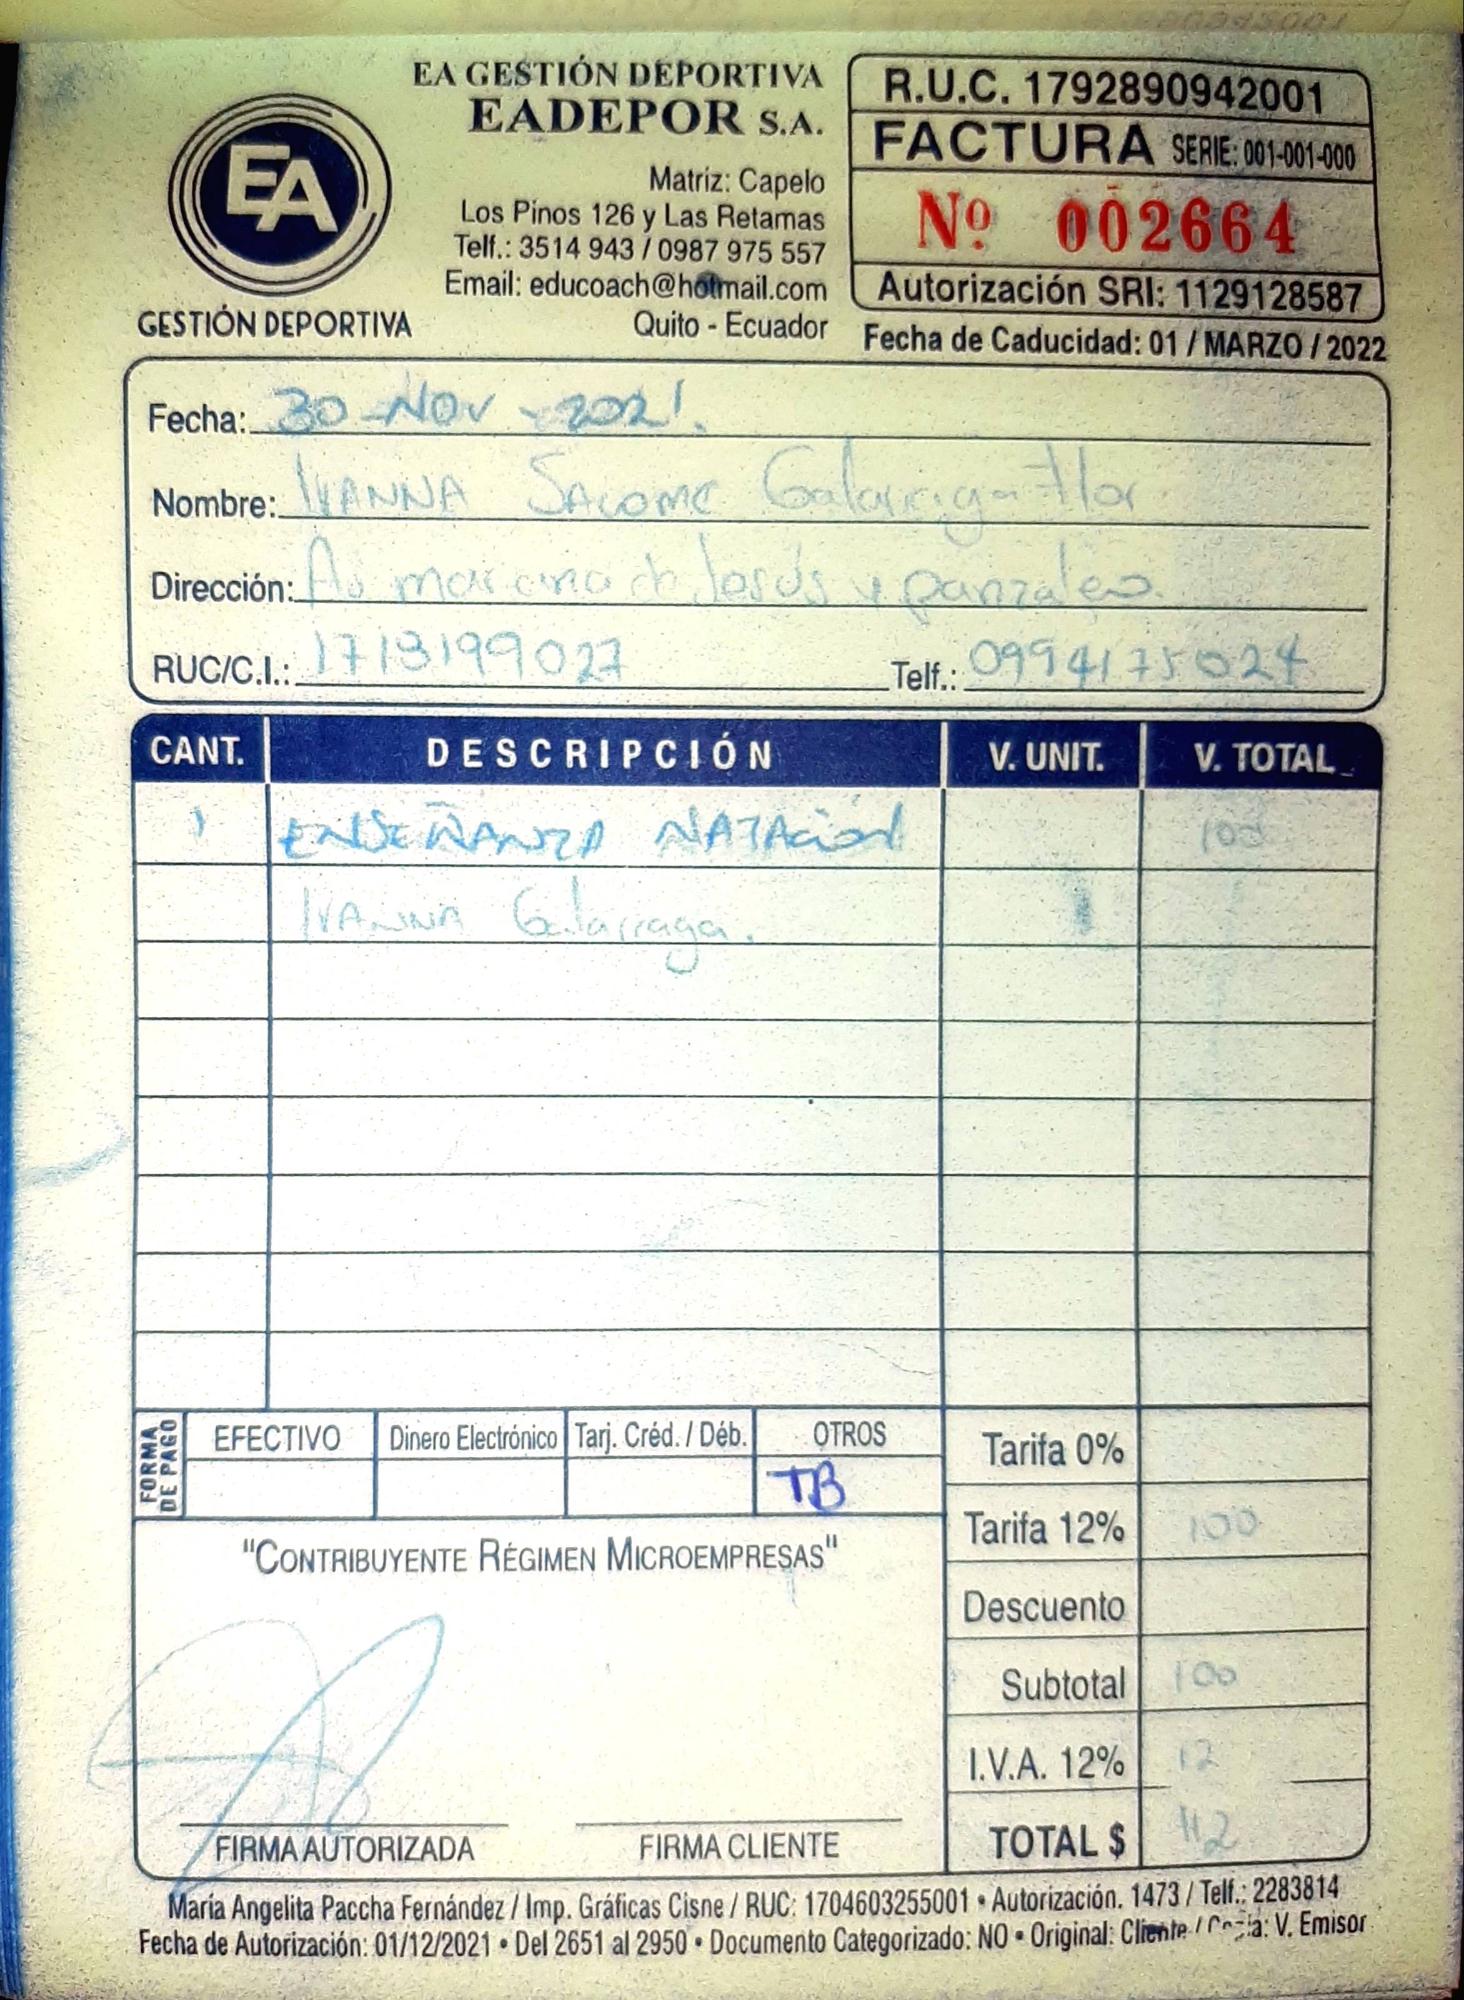 EA GESTIÓN DEPORTIVA
EADEPOR S.A.
Matriz: Capelo
Los Pinos 126 y Las Retamas
Telf.: 3514 943 / 0987 975 557
Email: educoach@hotmail.com
Quito - Ecuador
EA
GESTIÓN DEPORTIVA
R.U.C. 1792890942001
FACTURA SERIE: 001-001-000
Nº 002664
Autorización SRI: 1129128587
Fecha de Caducidad: 01 / MARZO / 2022
Fecha: 30-NOV-2021.
Nombre: IVANNA SALOME Galarraga Flor
Dirección: Av mariana de Jesús y panzaleo.
RUC/C.I.: 1713199027 Telf.: 0994175024
CANT. DESCRIPCIÓN V. UNIT. V. TOTAL
1 ENSEÑANZA NATACIÓN 100
IVANNA Galarraga.
FORMA DE PAGO
EFECTIVO Dinero Electrónico Tarj. Créd. / Déb. OTROS
TB
Tarifa 0%
Tarifa 12% 100
Descuento
Subtotal 100
I.V.A. 12% 12
TOTAL $ 112
"CONTRIBUYENTE RÉGIMEN MICROEMPRESAS"
FIRMA AUTORIZADA FIRMA CLIENTE
María Angelita Paccha Fernández / Imp. Gráficas Cisne / RUC: 1704603255001 • Autorización. 1473 / Telf.: 2283814
Fecha de Autorización: 01/12/2021 • Del 2651 al 2950 • Documento Categorizado: NO • Original: Cliente / Copia: V. Emisor